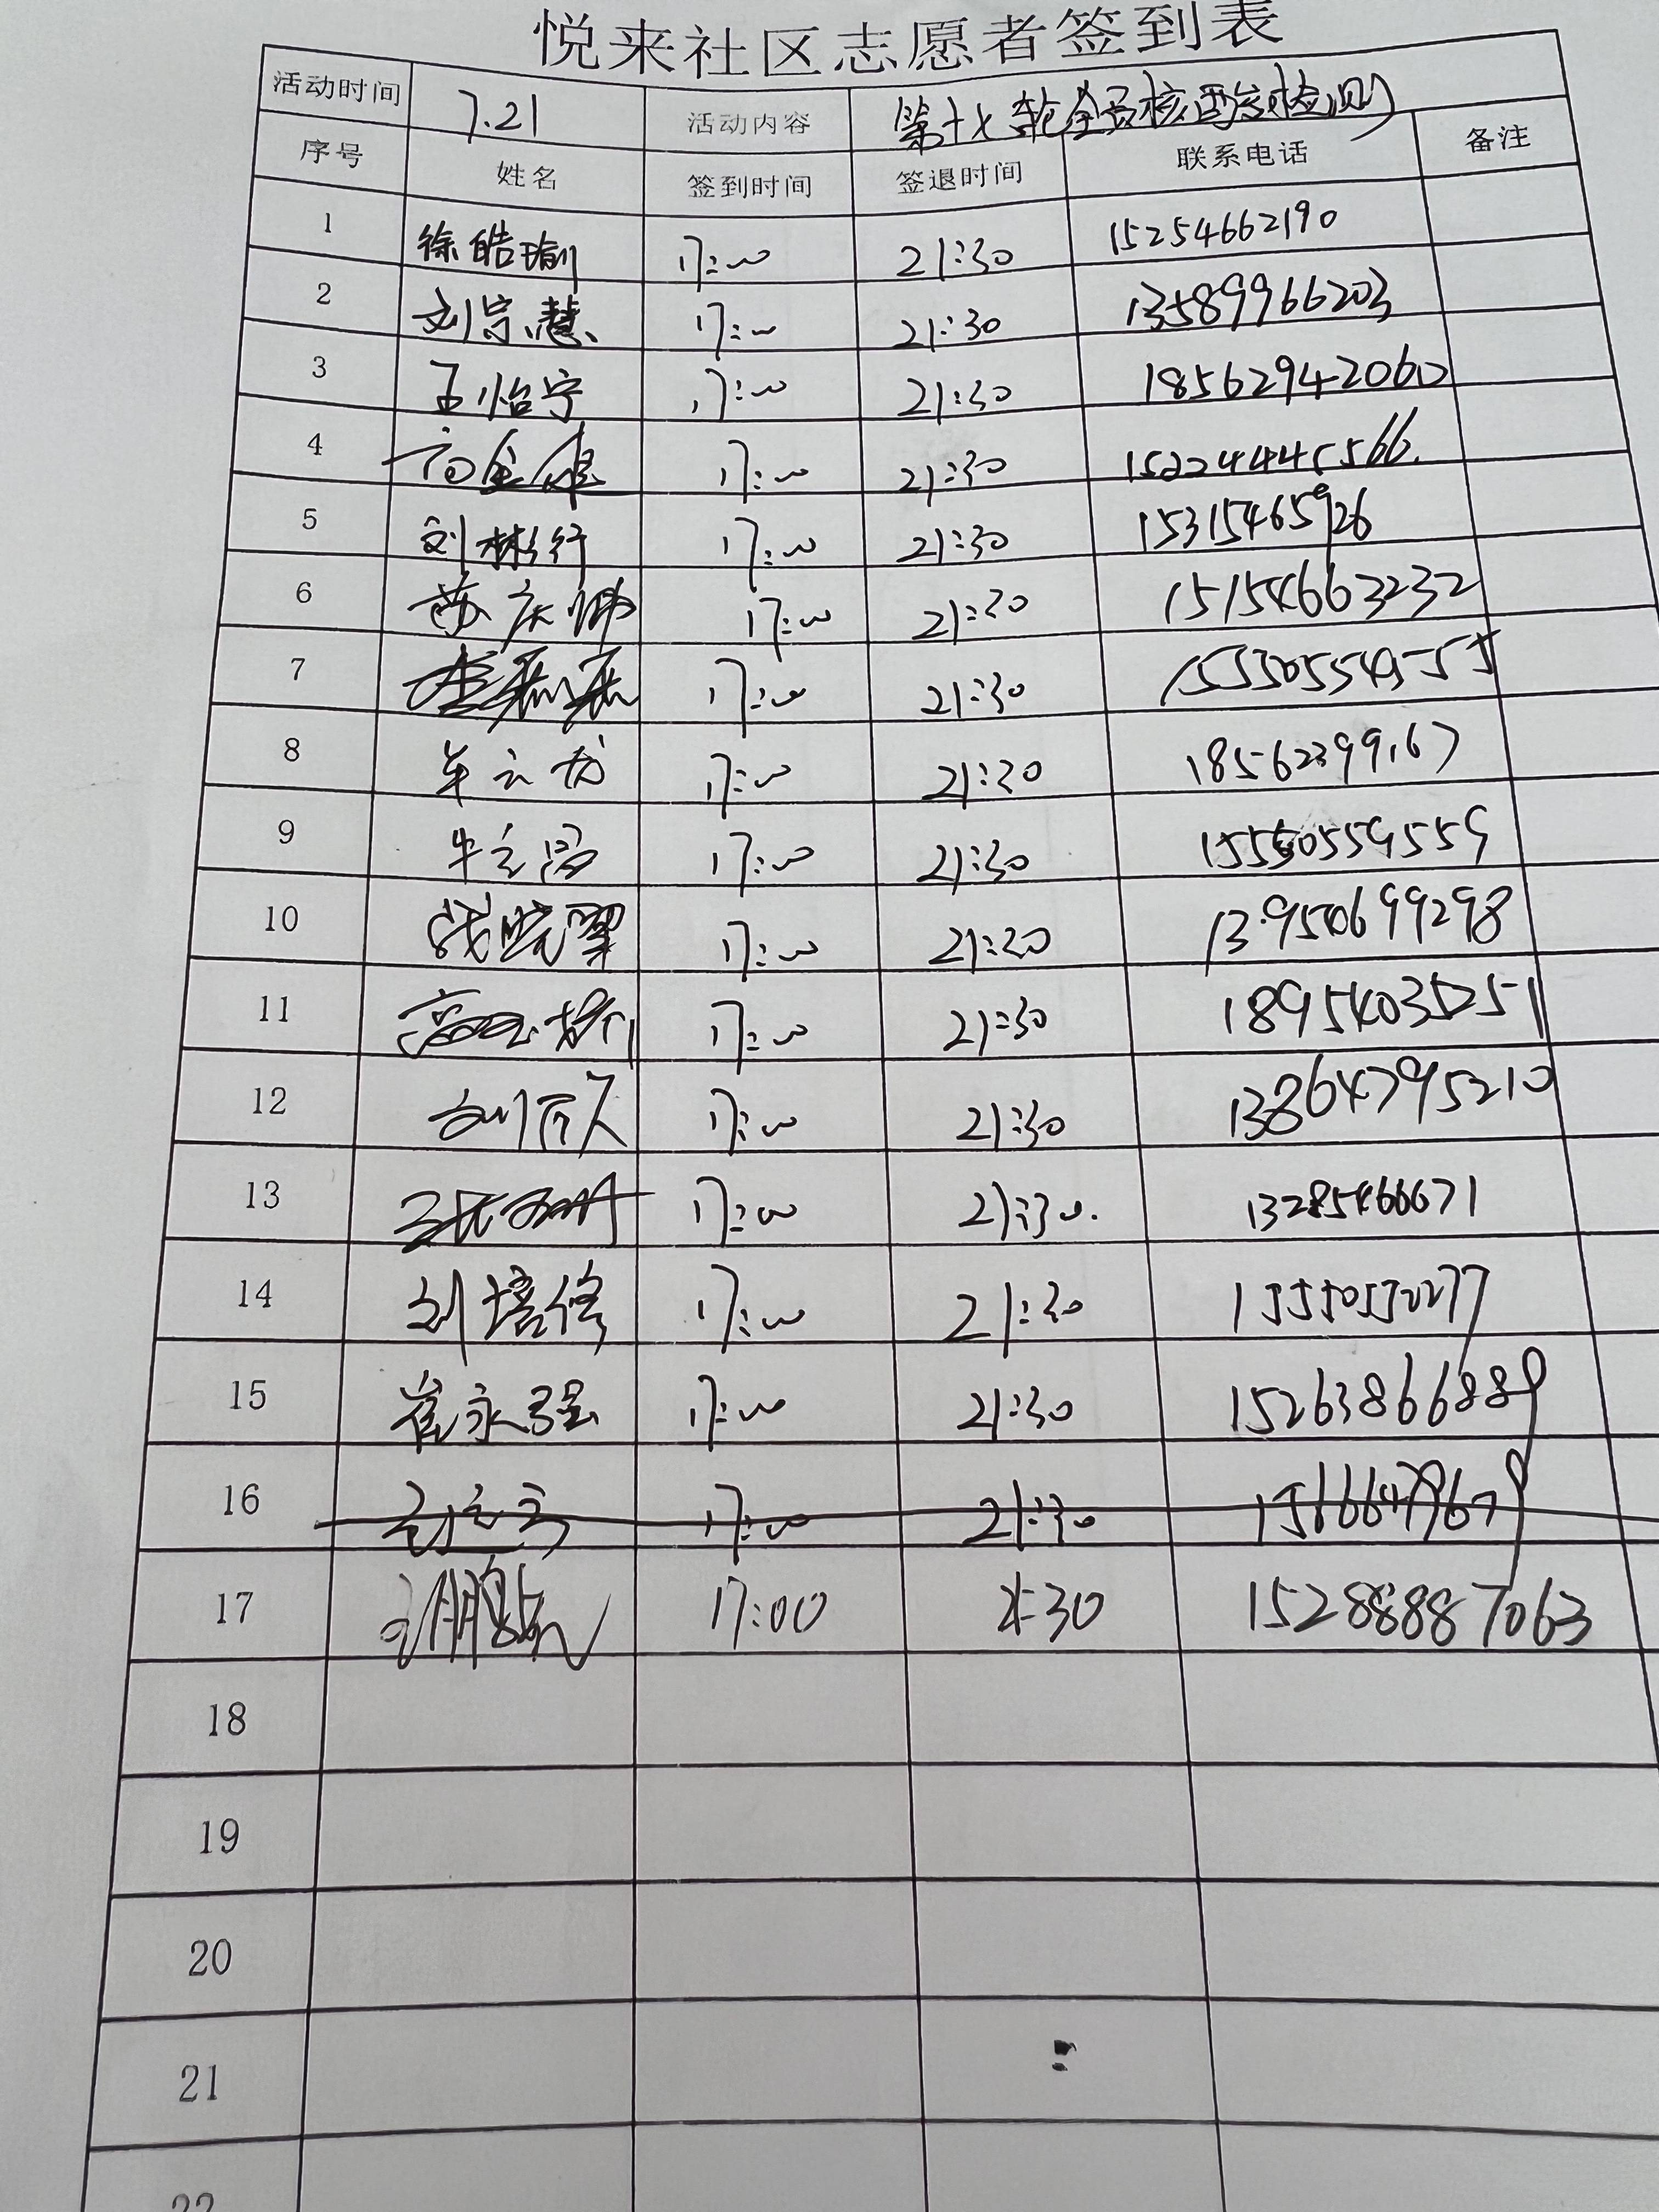 悦来社区志愿者签到表
活动时间 7.21 活动内容 第十七轮全员核酸检测
序号 姓名 签到时间 签退时间 联系电话 备注
1 徐皓瑜 17:00 21:30 15254662190
2 刘宗慧 17:00 21:30 13589966203
3 孟怡宁 17:00 21:30 18562942060
4 17:00 21:30 15224445566
5 刘彬行 17:00 21:30 15315465926
6 17:00 21:30 15154663232
7 17:00 21:30
8 牟云龙 17:00 21:30 18562399167
9 17:00 21:30 15550559559
10 战晓翠 17:00 21:30
11 17:00 21:30 18954035251
12 17:00 21:30 13864795210
13 17:00 21:30. 13285466671
14 刘培修 17:00 21:30 15550570277
15 崔永强 17:00 21:30 15263866889
16 17:00 21:30 15666479679
17 17:00 21:30 15288887063
18
19
20
21
22